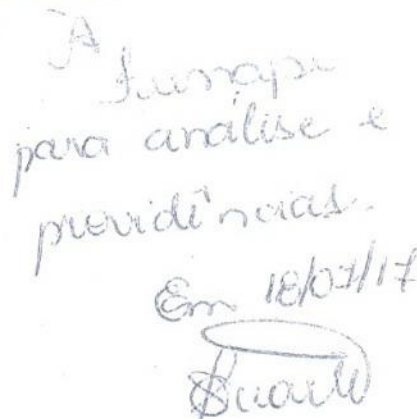 À
Funape
para análise e
providências.
Em 18/07/17